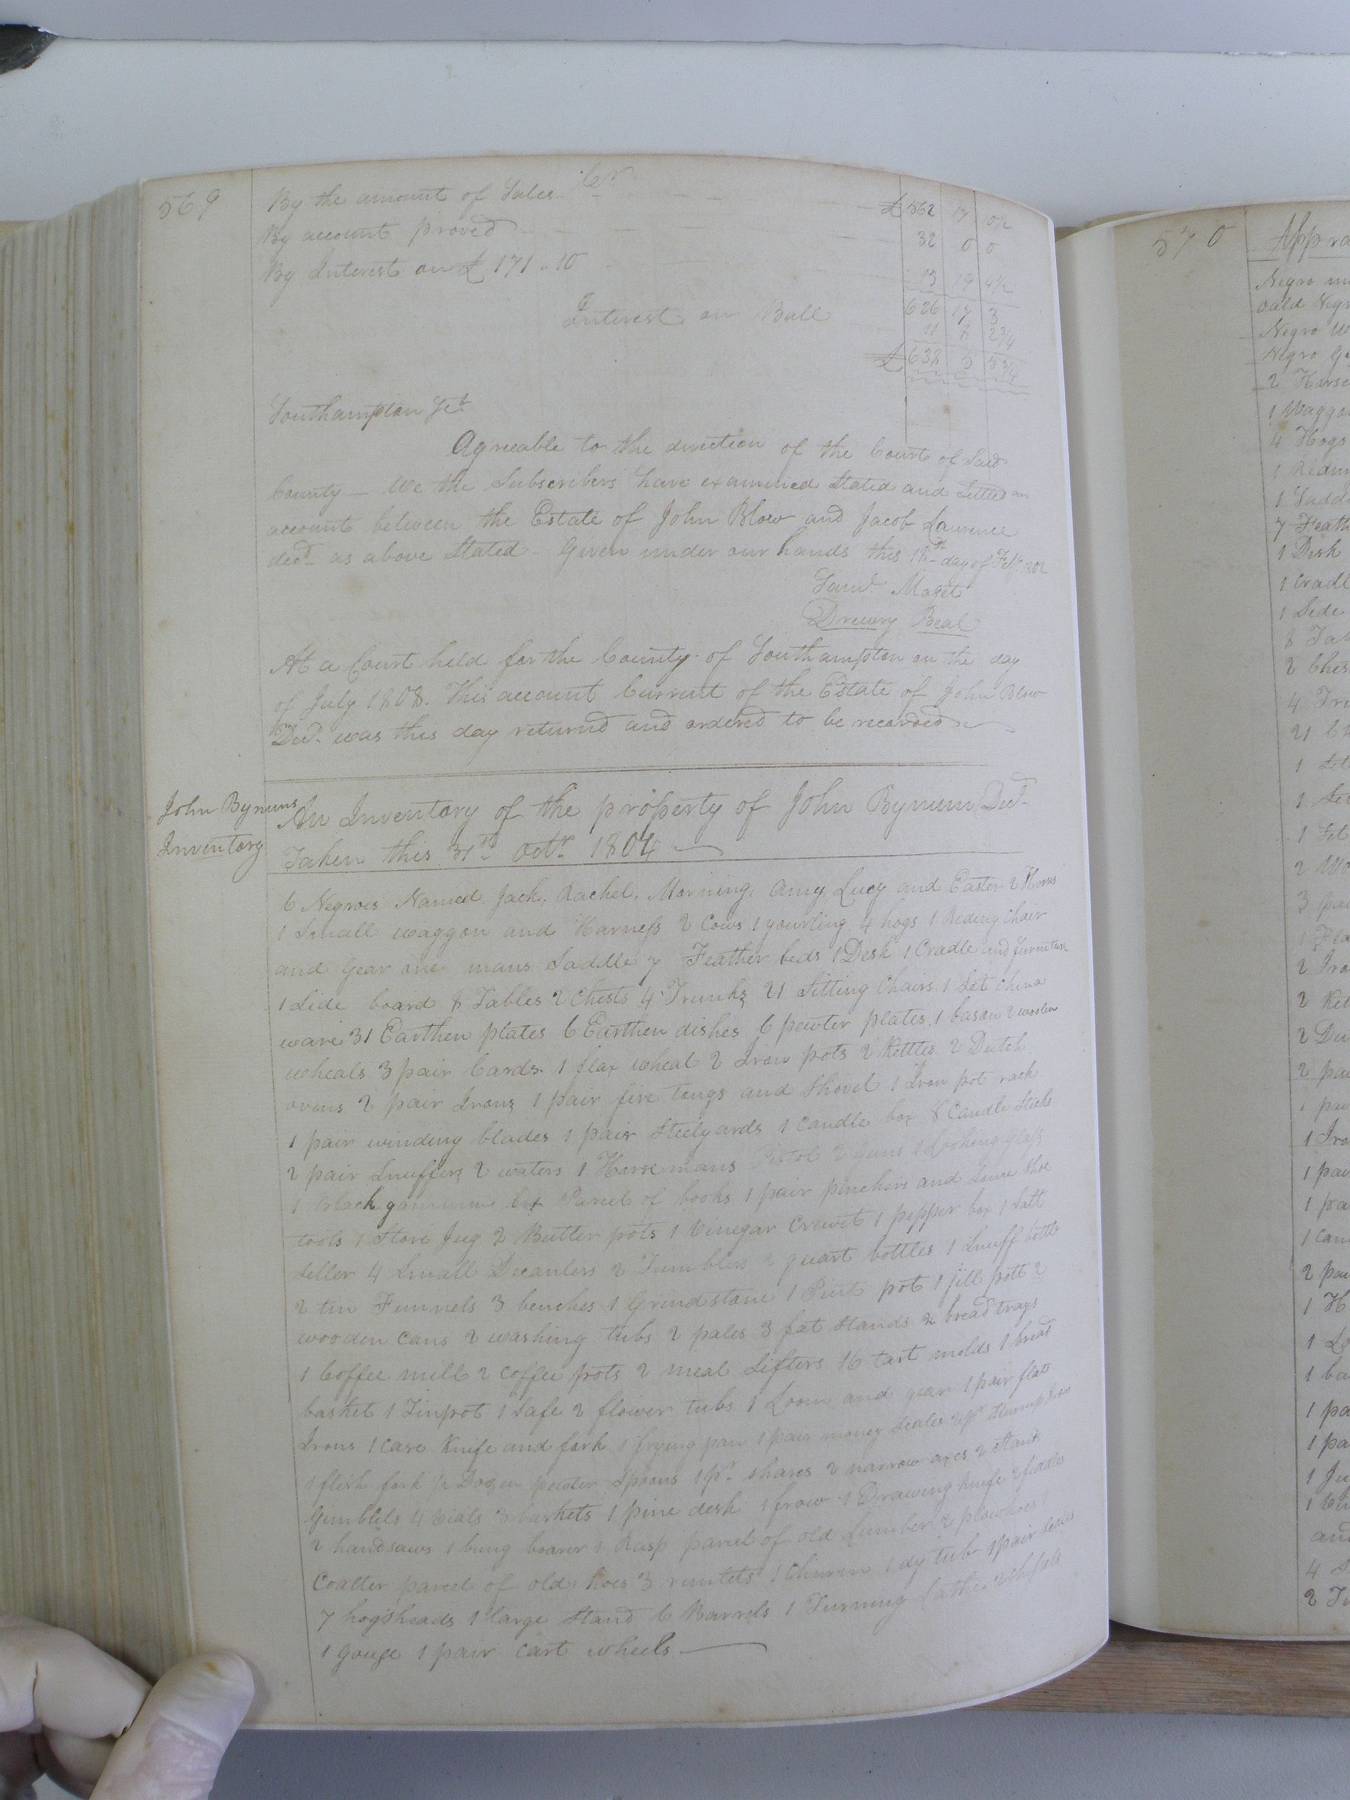 569
Cr
By the amount of Sales £562 17
By account proved 32 0 0
By Interest on £171..10 19
Interest on Ball 626 17 3
11
£638 5 5 3/4
Southampton Sct
Agreeable to the direction of the Court of Said
County - We the Subscribers have examined Stated and Settled an
account between the Estate of John Blow and Jacob Lawrence
decd as above Stated - Given under our hands this day of Feby
Maget
Drewry Beal
At a Court held for the County of Southampton on the day
of July 1808. This account Current of the Estate of John Blow
Decd. was this day returned and ordered to be recorded
John Bynums
Inventory
An Inventory of the property of John Bynum Decd.
Taken this 31st octr 1804
6 Negroes Named Jack. Rachel. Morning. Amy Lucy and Easter 2 Horses
1 Small waggon and Harness 2 Cows 1 yourling 4 hogs 1 Riding Chair
and Gear one mans Saddle 7 Feather beds 1 Desk 1 Cradle and furneture
1 Side board 8 Tables 2 Chests 4 Trunks 21 Sitting Chairs 1 Set China
ware 31 Earthen plates 6 Earthen dishes 6 pewter plates 1 bason 2 woolen
wheals 3 pair Cards. 1 flax wheal 2 Iron pots 2 Kettles 2 Dutch
ovens 2 pair Irons 1 pair fire tongs and Shovel 1 Iron pot rack
1 pair winding blades 1 pair Steelyards 1 candle box 8 Candle Sticks
2 pair Snuffers 2 waters 1 Horsemans Pistol 2 guns 1 Looking Glass
1 black gammun Parcel of books 1 pair pinchers and Some Shoe
tools 1 Stone Jug 2 Butter pots 1 Vinegar Crewit 1 pepper box 1 Salt
Seller 4 Small Decanters 2 Tumblers quart bottles 1 Snuff bottle
2 tin Funnels 3 benches 1 Grindstone 1 Pint pot 1 jill pott 2
wooden cans 2 washing tubs 2 pales 3 fat Stands 2 bread trays
1 Coffee mill 2 Coffee pots 2 meal Sifters 16 tart molds 1 bread
basket 1 Tinpot 1 Safe 2 flower tubs 1 Loom and gear 1 pair flat
Irons 1 case Knife and fork 1 frying pan 1 pair money Scales
1 flesh fork 1/2 Dozen pewter Spoons 1 pr. shares 2 narrow axes 2 Stand
Gimblets 4 Vials 3 baskets 1 pine desk 1 frow 1 Drawing knife 2 fiddles
2 handsaws 1 bung boarer 1 Rasp parcel of old Lumber 2 plowhoes 1
Coalter parcel of old hoes 3 runlets 1 Churn 1 dy tub 1 pair
7 hogsheads 1 large Stand 6 Barrels 1 Turning Lathe
1 gouge 1 pair cart wheels
570
Negro
vald Negro
Negro
Negro
2 Horse
1 Waggon
4 Hogs
1
1 Saddle
7 Feath
1 Desk
1 Cradle
1 Side
8 Tab
2 Ches
4 Tru
21
1
1
1
2
3 pai
1 Fla
2 Iro
2 Ket
2 Du
2 pa
1
1 Iro
1 pai
1 pa
1 can
2 pai
1 H
1 Lo
1 ba
1 pa
1 pa
1 Ju
1
and
4
2